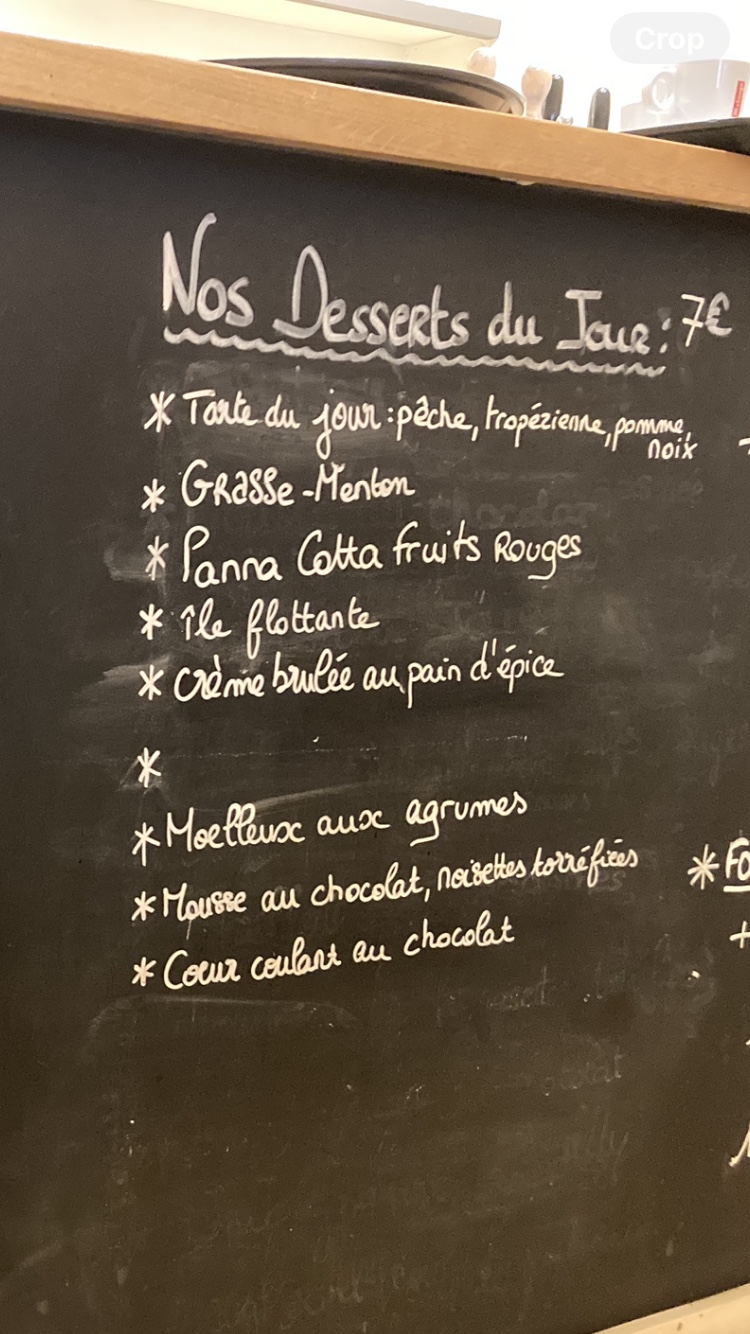 Crop
Nos Desserts du Jour : 7€
* Tarte du jour : pêche, tropézienne, pomme,
noix
* Grasse-Menton
* Panna Cotta fruits Rouges
* île flottante
* crème brulée au pain d'épice
*
* Moelleux aux agrumes
* Mousse au chocolat, noisettes torréfiées
* Coeur coulant au chocolat
* Fo
+